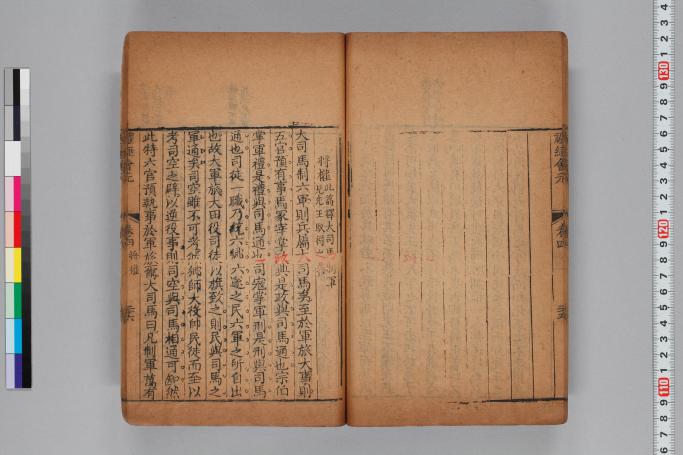 禮經會元
卷四
將權
大司馬制六軍則兵屬大司馬矣至於軍旅大事則
五官預有事焉冢宰掌
政典是政與司馬通也宗伯
掌軍禮是禮與司馬通也司寇掌軍刑是刑與司馬
通也司徒一職乃統六鄉六遂之民六軍之所自出
也故大軍旅大田役司徒以旗致之則民與司馬之
軍通矣司空雖不可考然鄉師大役帥民徒而至以
考司空之辟以逆役事則司空與司馬相通可知然
此特六官預執事於軍旅爾大司馬曰凡制軍萬有
禮經會元
卷四
將權